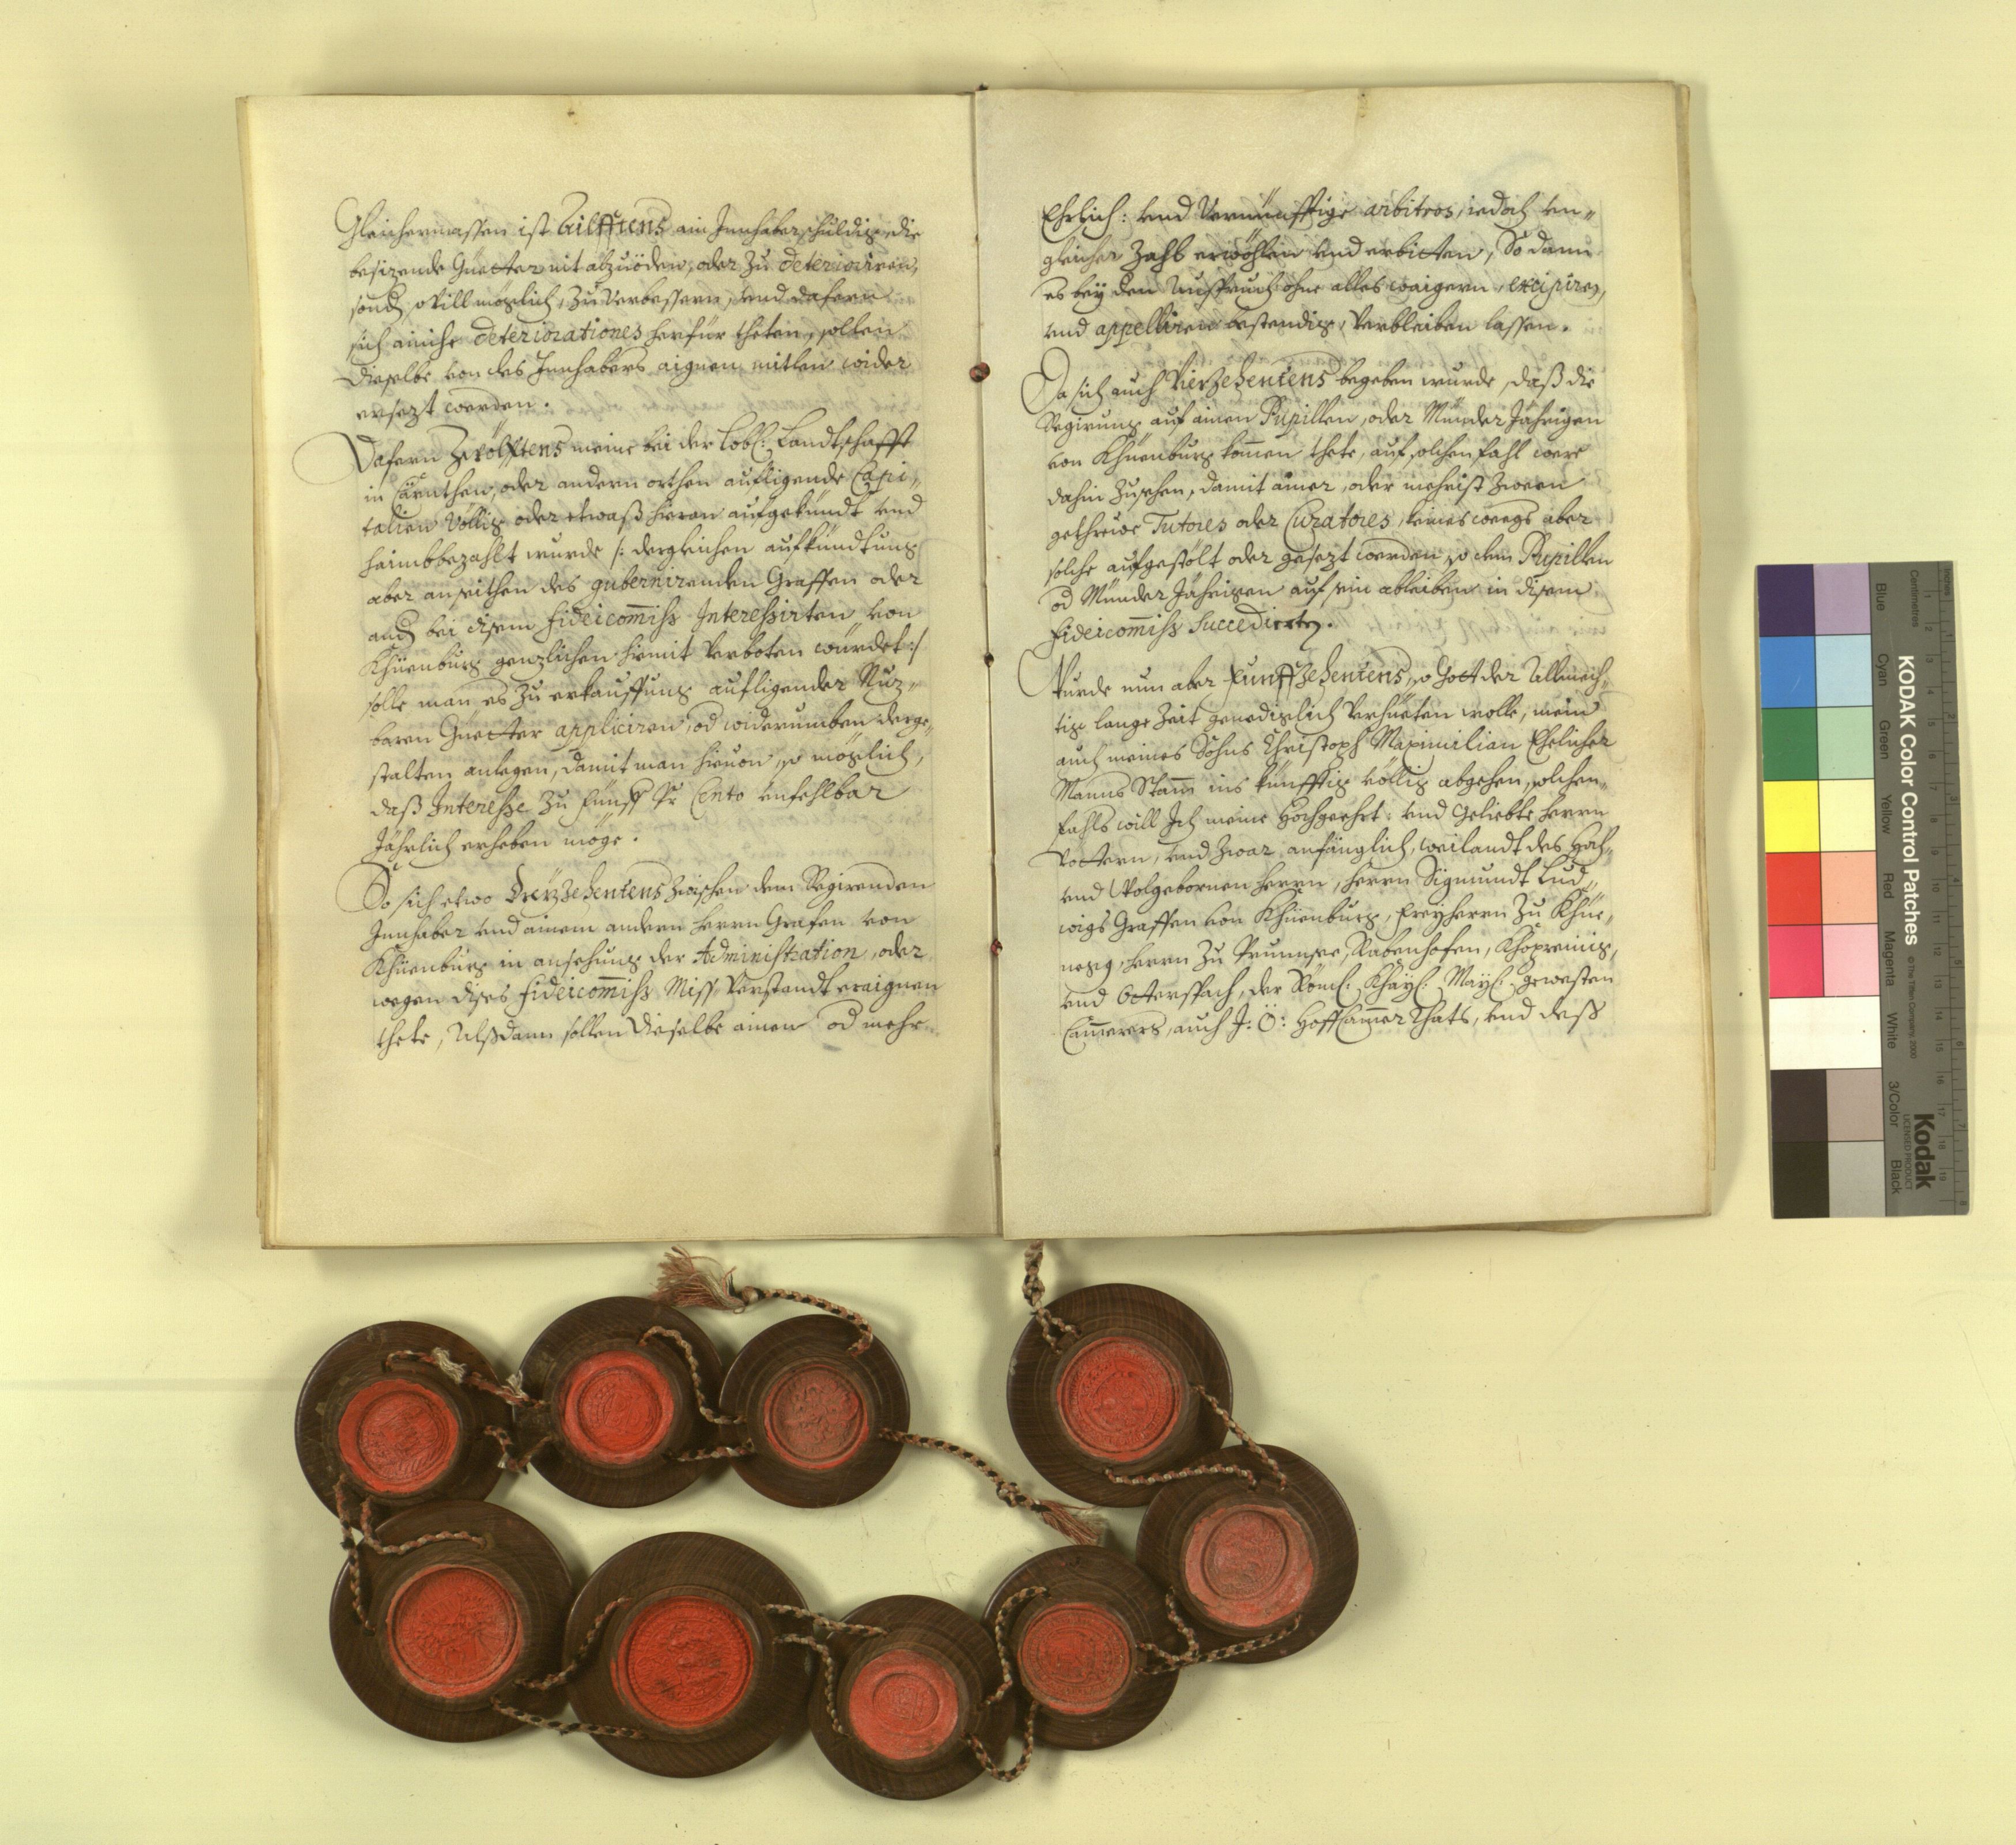 Gleichermassen ist Eilfftens ain Innhaber schuldig, die
besizende Güetter nit abzuöden, oder zu deterioriren,
sond, souill möglich, zu verbessern, vnd dafern
sich ainiche deteriorationes herfür theten, sollen
dieselbe von des Innhabers aignen mitlen wider
ersezt werden.
Dafern Zwölfftens meine bei der Löbl: Landtschafft
in Cärnthen, oder andern orthen aufligende Capi„
talien völlig oder etwaß hieran aufgekündt vnd
haimbbezahlt wurde /: dergleichen aufkündtung
aber anseithen des gubernirenden Graffen oder
auch bei disem fideicom̄iss Interessirten von
Khüenburg genzlichen hiemit verboten würdet :/
solle man es zu erkauffung aufligender Nuz„
baren Güetter appliciren, od widerumben derge„
stalten anlegen, damit man hieuon, so möglich,
daß Interesse zu fünff Pr Cento vnfehlbar
Jährlich erheben möge.
So sich etwo Dreyzehentens zwischen dem Regirenden
Innhaber vnd ainem andern Herrn Grafen von
Khüenburg in ansehung der Administration, oder
wegen dises fideicom̄iss Missverstandt eraignen
thete, Alßdann sollen dieselbe ainen od mehr
Ehrlich: vnd Vernünfftige arbitros, iedoch vn„
gleicher Zahl erwöhlen vnd erbitten, So dann
es bey den Außspruch ohne alles waigern, excipiren,
vnd appelliren bestendig, verbleiben lassen.
Da sich auch Vierzehentens begeben wurde, daß die
Regirung auf ainen Pupillen, oder Münder Jährigen
von Khüenburg kom̄en thete, auf solchen fahl were
dahin zusehen, damit ainer, oder mehrist zween
gethreue Tutores oder Curatores, keines weegs aber
solche aufgestölt oder gesezt werden, so dem Pupillen
od Münder Jährigen auf sein ableiben in disem
fideicom̄iss Succedirten.
Wurde nun aber Funffzehentens, so Gott der Allmech„
tig lange Zeit genediglich verhüeten wolle, mein
auch meines Sohns Christoph Maximilian Ehelicher
Manns Stam̄ ins künfftig völlig abgehen, solchen„
fahls will Ich meine Hochgeehrt: vnd Geliebte Herrn
Vöttern, vnd zwar anfänglich, weilandt des Hoch„
vnd Wolgebornen Herrn, Herrn Sigmundt Lud„
wigs Graffen von Khüenburg, Freyherrn zu Khüe„
negg, Herrn zu Prunnsee, Rabenhofen,
vnd der Röm: Khayl: Mayl: gewesten
Cam̄erers, auch I: Ö: HoffCam̄er Rhats, vnd deß
KODAK Color Control Patches
© The Tiffen Company, 2000
Kodak
LICENSED PRODUCT
Centimetres
Inches
Blue
Cyan
Green
Yellow
Red
Magenta
White
3/Color
Black